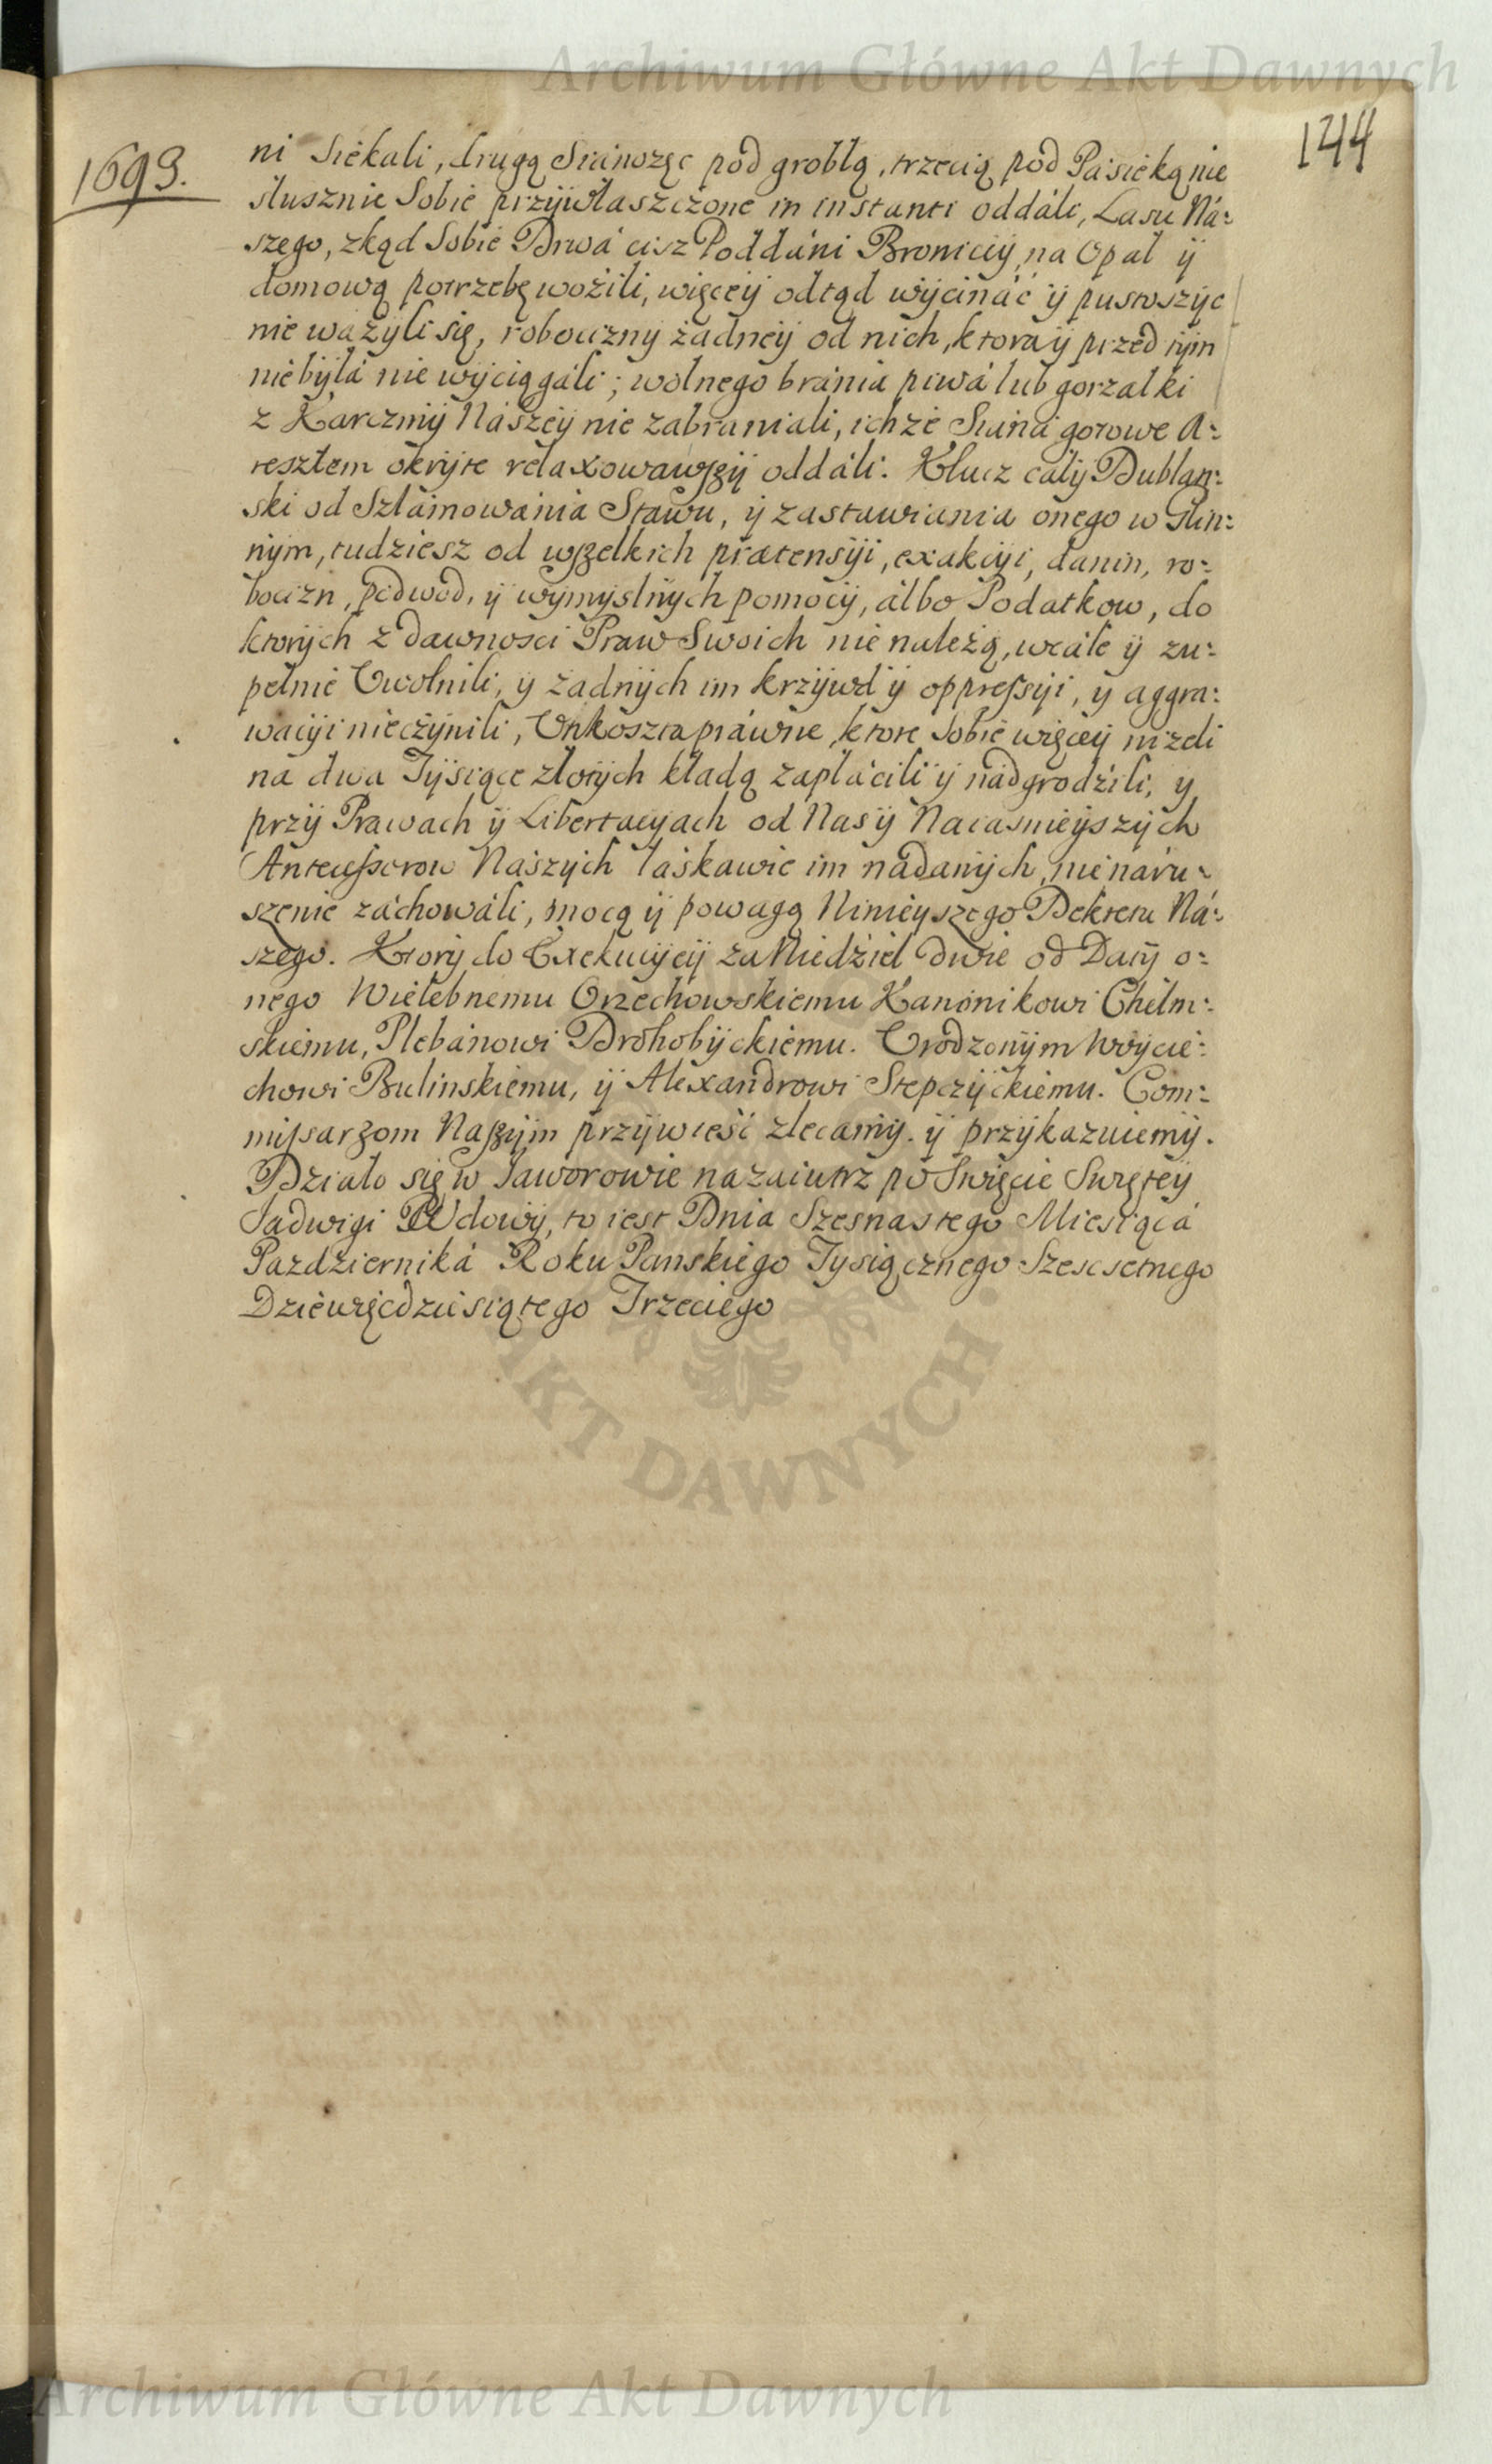 Archiwum Główne Akt Dawnych
144
1693.
ni siekali, drugą Sianożęc pod groblą, trzecią pod Pasieką nie
słusznie Sobie przÿwłaszczone in instanti oddáli, Lasu Ná:
szego, zkąd Sobie Drwá cisz Poddáni Broniccÿ, na Opał ÿ
domową potrzebę wożili, więceÿ odtąd wÿcináć ÿ pustoszÿc
nie ważÿli się, robociznÿ żadneÿ od nich, ktora ÿ przed tÿm
niebÿłá nie wÿciągáli; wolnego bránia piwá lub gorzałki
z Karczmÿ Nászeÿ nie zabraniali, ichże Siána gotowe A:
resztem okrÿte relaxowawszÿ oddáli. Klucz cáłÿ Dublan:
ski od Szlámowánia Stawu, ÿ zastawiania onego w Glin:
nÿm, tudziesz od wszelkich prætensÿi, exakcÿi, danin, ro:
bocizn, podwod, ÿ wÿmÿslnÿch pomocÿ, álbo Podatkow, do
ktorÿch z dawnosci Praw Swoich nie należą, wcále ÿ zu:
pełnie Uwolnili, ÿ żadnÿch im krzÿwd ÿ oppressÿi, y aggra:
wacÿi nieczÿnili, Unkoszta práwne, ktore Sobie więceÿ nizeli
na dwa Tÿsiące złotÿch kładą zapłácili ÿ nádgrodźili, y
przÿ Prawach ÿ Libertacÿach od Nas ÿ Naiasnieÿszÿch
Antecessorow Nászÿch łáskawie im nádanÿch, nienáru:
szenie záchowáli, mocą ÿ powagą Ninieÿszego Dekretu Ná:
szego. Ktorÿ do Exekucÿeÿ za Niedźiel dwie od Datÿ o:
nego Wielebnemu Orzechowskiemu Kanonikowi Chełm:
skiemu, Plebánowi Drohobÿckiemu. Urodzonÿm Woÿcie:
chowi Bulinskiemu, ÿ Alexandrowi Stepczÿckiemu. Com:
missarzom Naszÿm przÿwieść zlecamÿ. ÿ przÿkazuiemÿ.
Działo się w Jaworowie nazaiutrz po Swięcie Swięteÿ
Jadwigi Wdowÿ, to iest Dnia Szesnastego Miesiącá
Pazdzierniká Roku Panskiego Tysiącznego Szescsetnego
Dziewięcdziesiątego Trzeciego
AKT DAWNYCH
Archiwum Główne Akt Dawnych